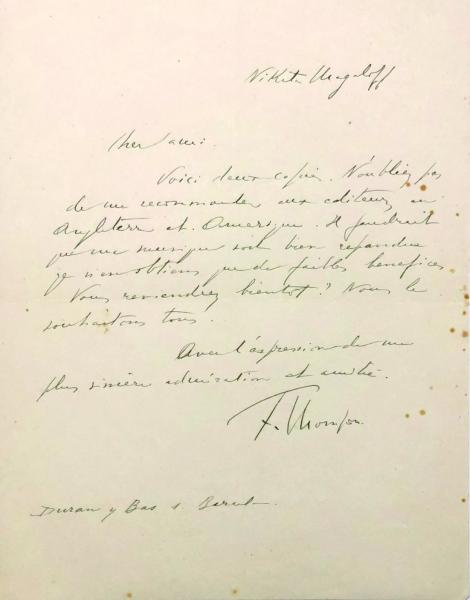 Nikita Magaloff
Cher ami.
Voici deux copies. N'oubliez pas
de me recommander aux editeurs en
Angleterr et Amerique. Il faudrait
que ma musique soit bien repandue
je n'en obtiens que de faibles benefices
Vous reviendrez bientot? Nous le
souhaitons tous.
Avec l'expression de ma
plus sincère admiration et amitié.
F. Mompou
Duran y Bas